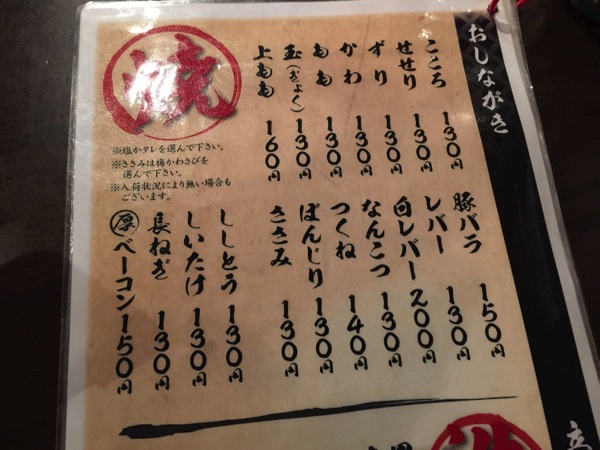 おしながき
焼
※塩かタレを選んで下さい。
※ささみは梅かわさびを
選んで下さい。
※入荷状況により無い場合も
ございます。
こころ 130円
せせり 130円
ずり 130円
かわ 130円
もも 130円
玉(ぎょく) 130円
上もも 160円
豚バラ 150円
レバー 130円
白レバー 200円
なんこつ 130円
つくね 140円
ぼんじり 130円
ささみ 130円
ししとう 130円
しいたけ 130円
長ねぎ 130円
厚ベーコン 150円